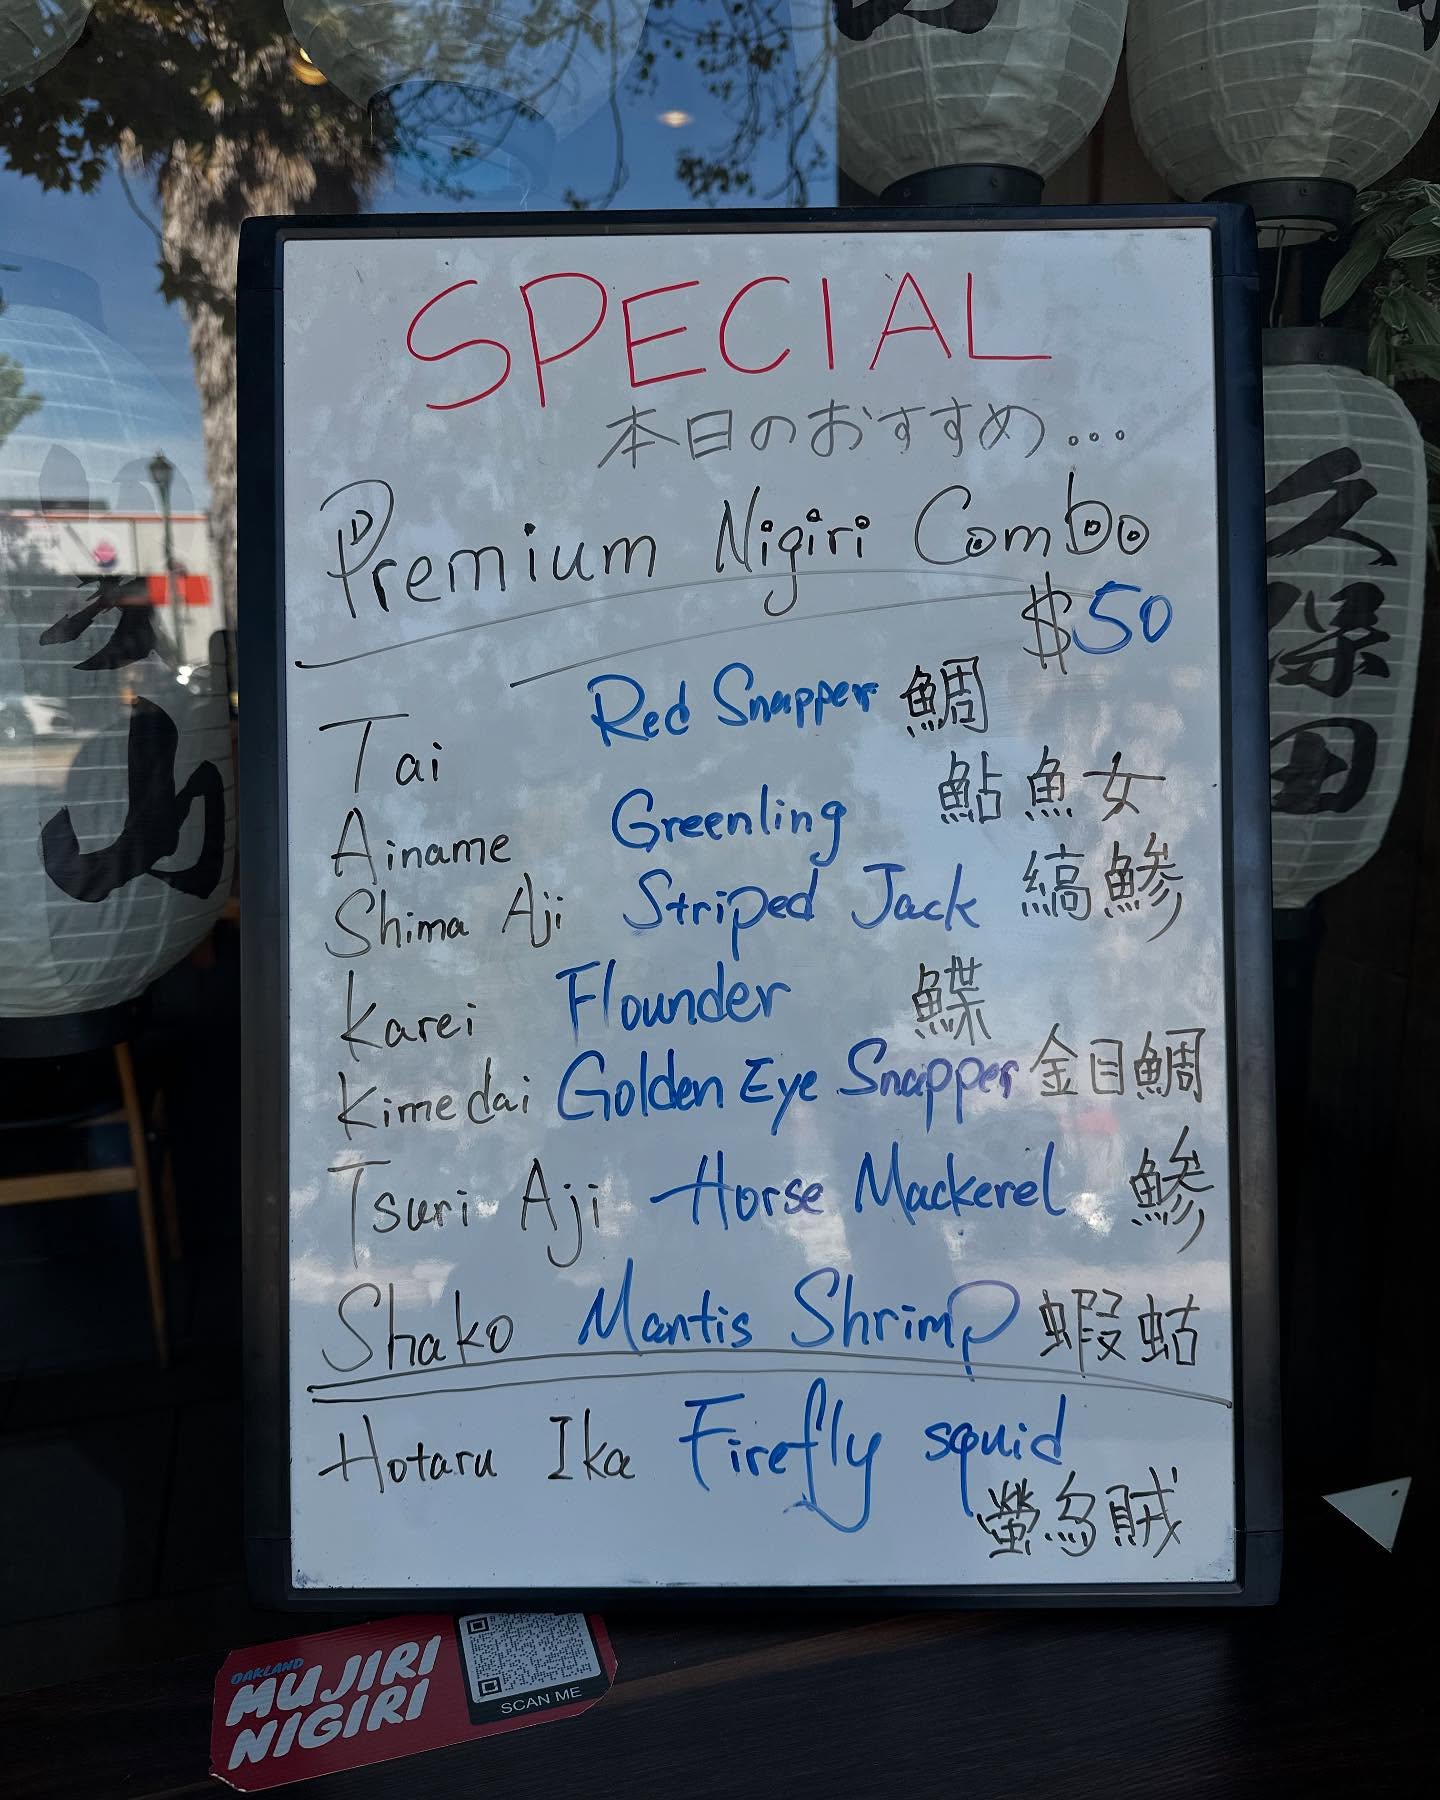 SPECIAL
本日のおすすめ...
Premium Nigiri Combo
$50
Tai Red Snapper 鯛
Ainame Greenling 鮎魚女
Shima Aji Striped Jack 縞鯵
Karei Flounder 鰈
Kimedai Golden Eye Snapper 金目鯛
Tsuri Aji Horse Mackerel 鯵
Shako Mantis Shrimp 蝦蛄
Hotaru Ika Firefly squid
螢烏賊
久保田
久山
OAKLAND
MUJIRI
NIGIRI
SCAN ME